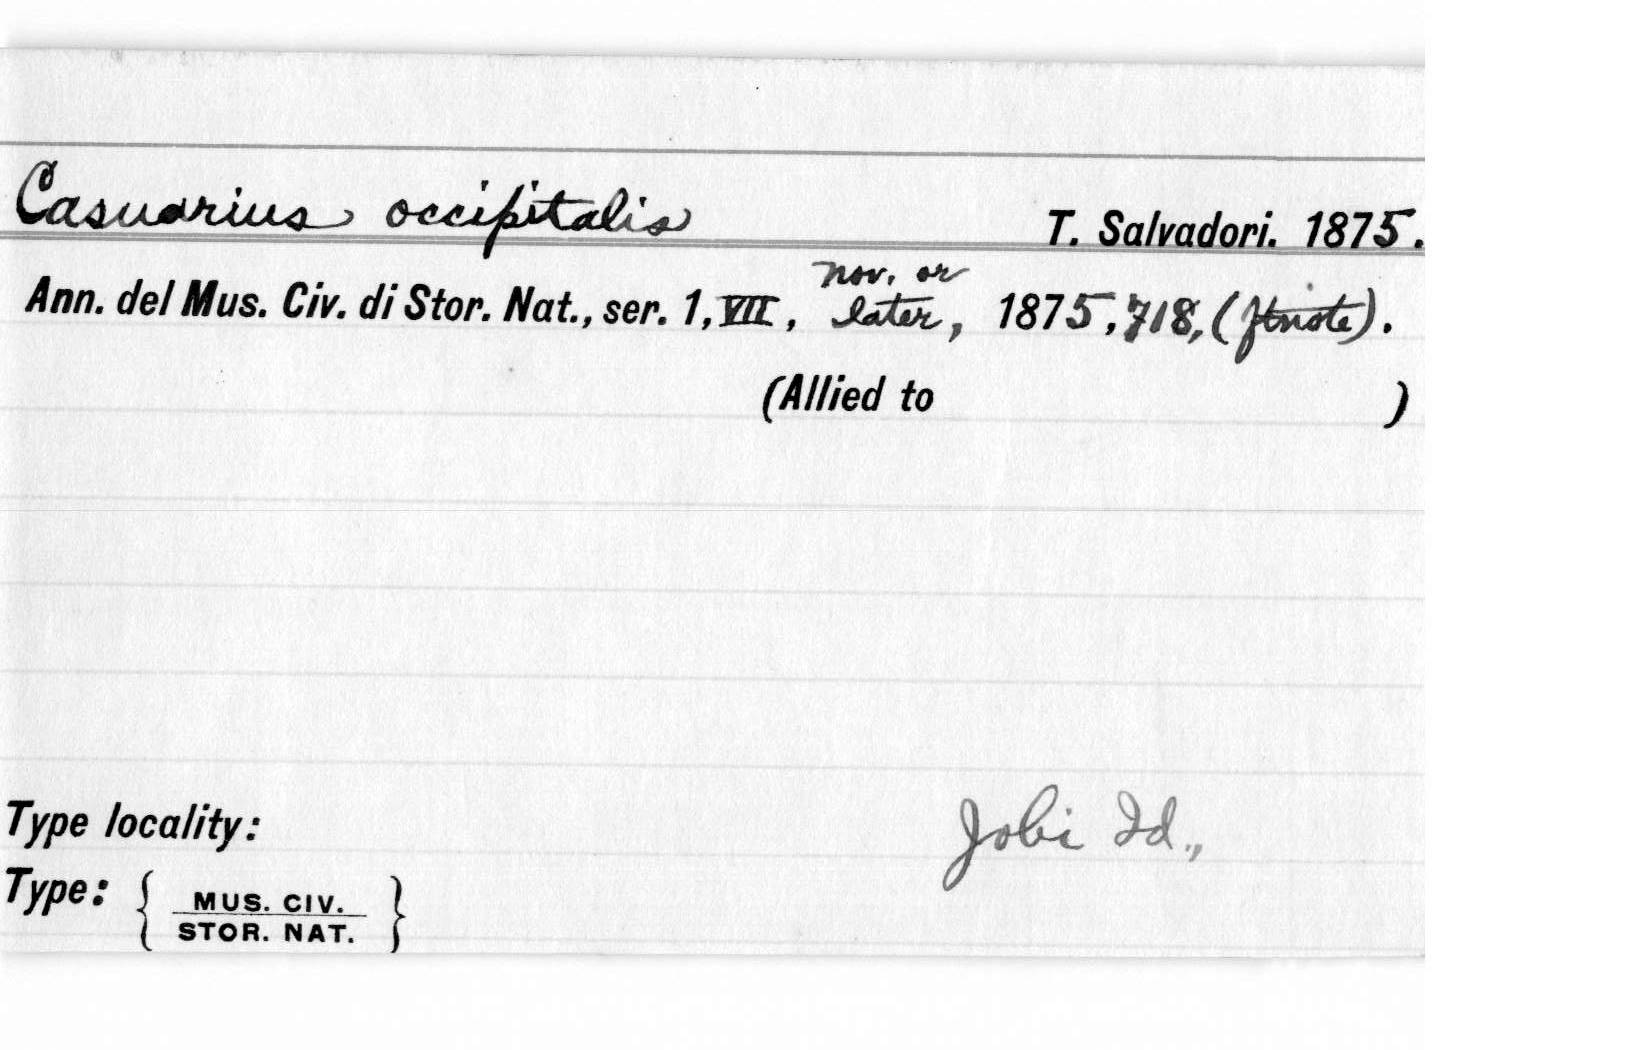 Casuarius occipitalis T. Salvadori. 1875.
nov. or
Ann. del Mus. Civ. di Stor. Nat., ser. 1, VII, later, 1875, 718, (ftnote).
(Allied to )
Type locality: Jobi Id.,
Type: { MUS. CIV.
STOR. NAT. }